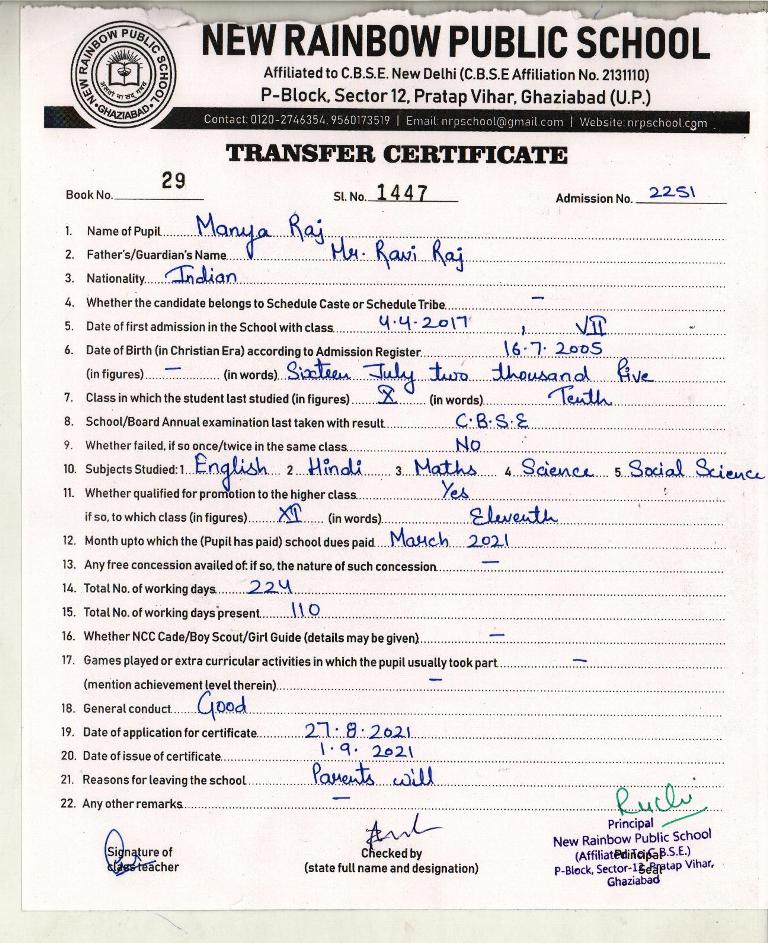 NEW RAINBOW PUBLIC SCHOOL
NEW RAINBOW PUBLIC SCHOOL
GHAZIABAD
Affiliated to C.B.S.E. New Delhi (C.B.S.E Affiliation No. 2131110)
P-Block, Sector 12, Pratap Vihar, Ghaziabad (U.P.)
Contact: 0120-2746354, 9560173519 | Email: nrpschool@gmail.com | Website: nrpschool.com
TRANSFER CERTIFICATE
Book No. 29 Sl. No. 1447 Admission No. 2251
1. Name of Pupil Manya Raj
2. Father's/Guardian's Name Mr. Ravi Raj
3. Nationality Indian
4. Whether the candidate belongs to Schedule Caste or Schedule Tribe —
5. Date of first admission in the School with class 4.4.2017, VII
6. Date of Birth (in Christian Era) according to Admission Register 16.7.2005
(in figures) — (in words) Sixteen July two thousand five
7. Class in which the student last studied (in figures) X (in words) Tenth
8. School/Board Annual examination last taken with result C.B.S.E
9. Whether failed, if so once/twice in the same class No
10. Subjects Studied: 1. English 2 Hindi 3. Maths 4. Science 5. Social Science
11. Whether qualified for promotion to the higher class Yes
if so, to which class (in figures) XI (in words) Eleventh
12. Month upto which the (Pupil has paid) school dues paid March 2021
13. Any free concession availed of: if so, the nature of such concession —
14. Total No. of working days 224
15. Total No. of working days present 110
16. Whether NCC Cade/Boy Scout/Girl Guide (details may be given) —
17. Games played or extra curricular activities in which the pupil usually took part —
(mention achievement level therein) —
18. General conduct Good
19. Date of application for certificate 27.8.2021
20. Date of issue of certificate 1.9.2021
21. Reasons for leaving the school Parents will
22. Any other remarks —
Ruchi
Signature of class teacher
Checked by
(state full name and designation)
Principal
Seal
Principal
New Rainbow Public School
(Affiliated To C.B.S.E.)
P-Block, Sector-12, Pratap Vihar,
Ghaziabad